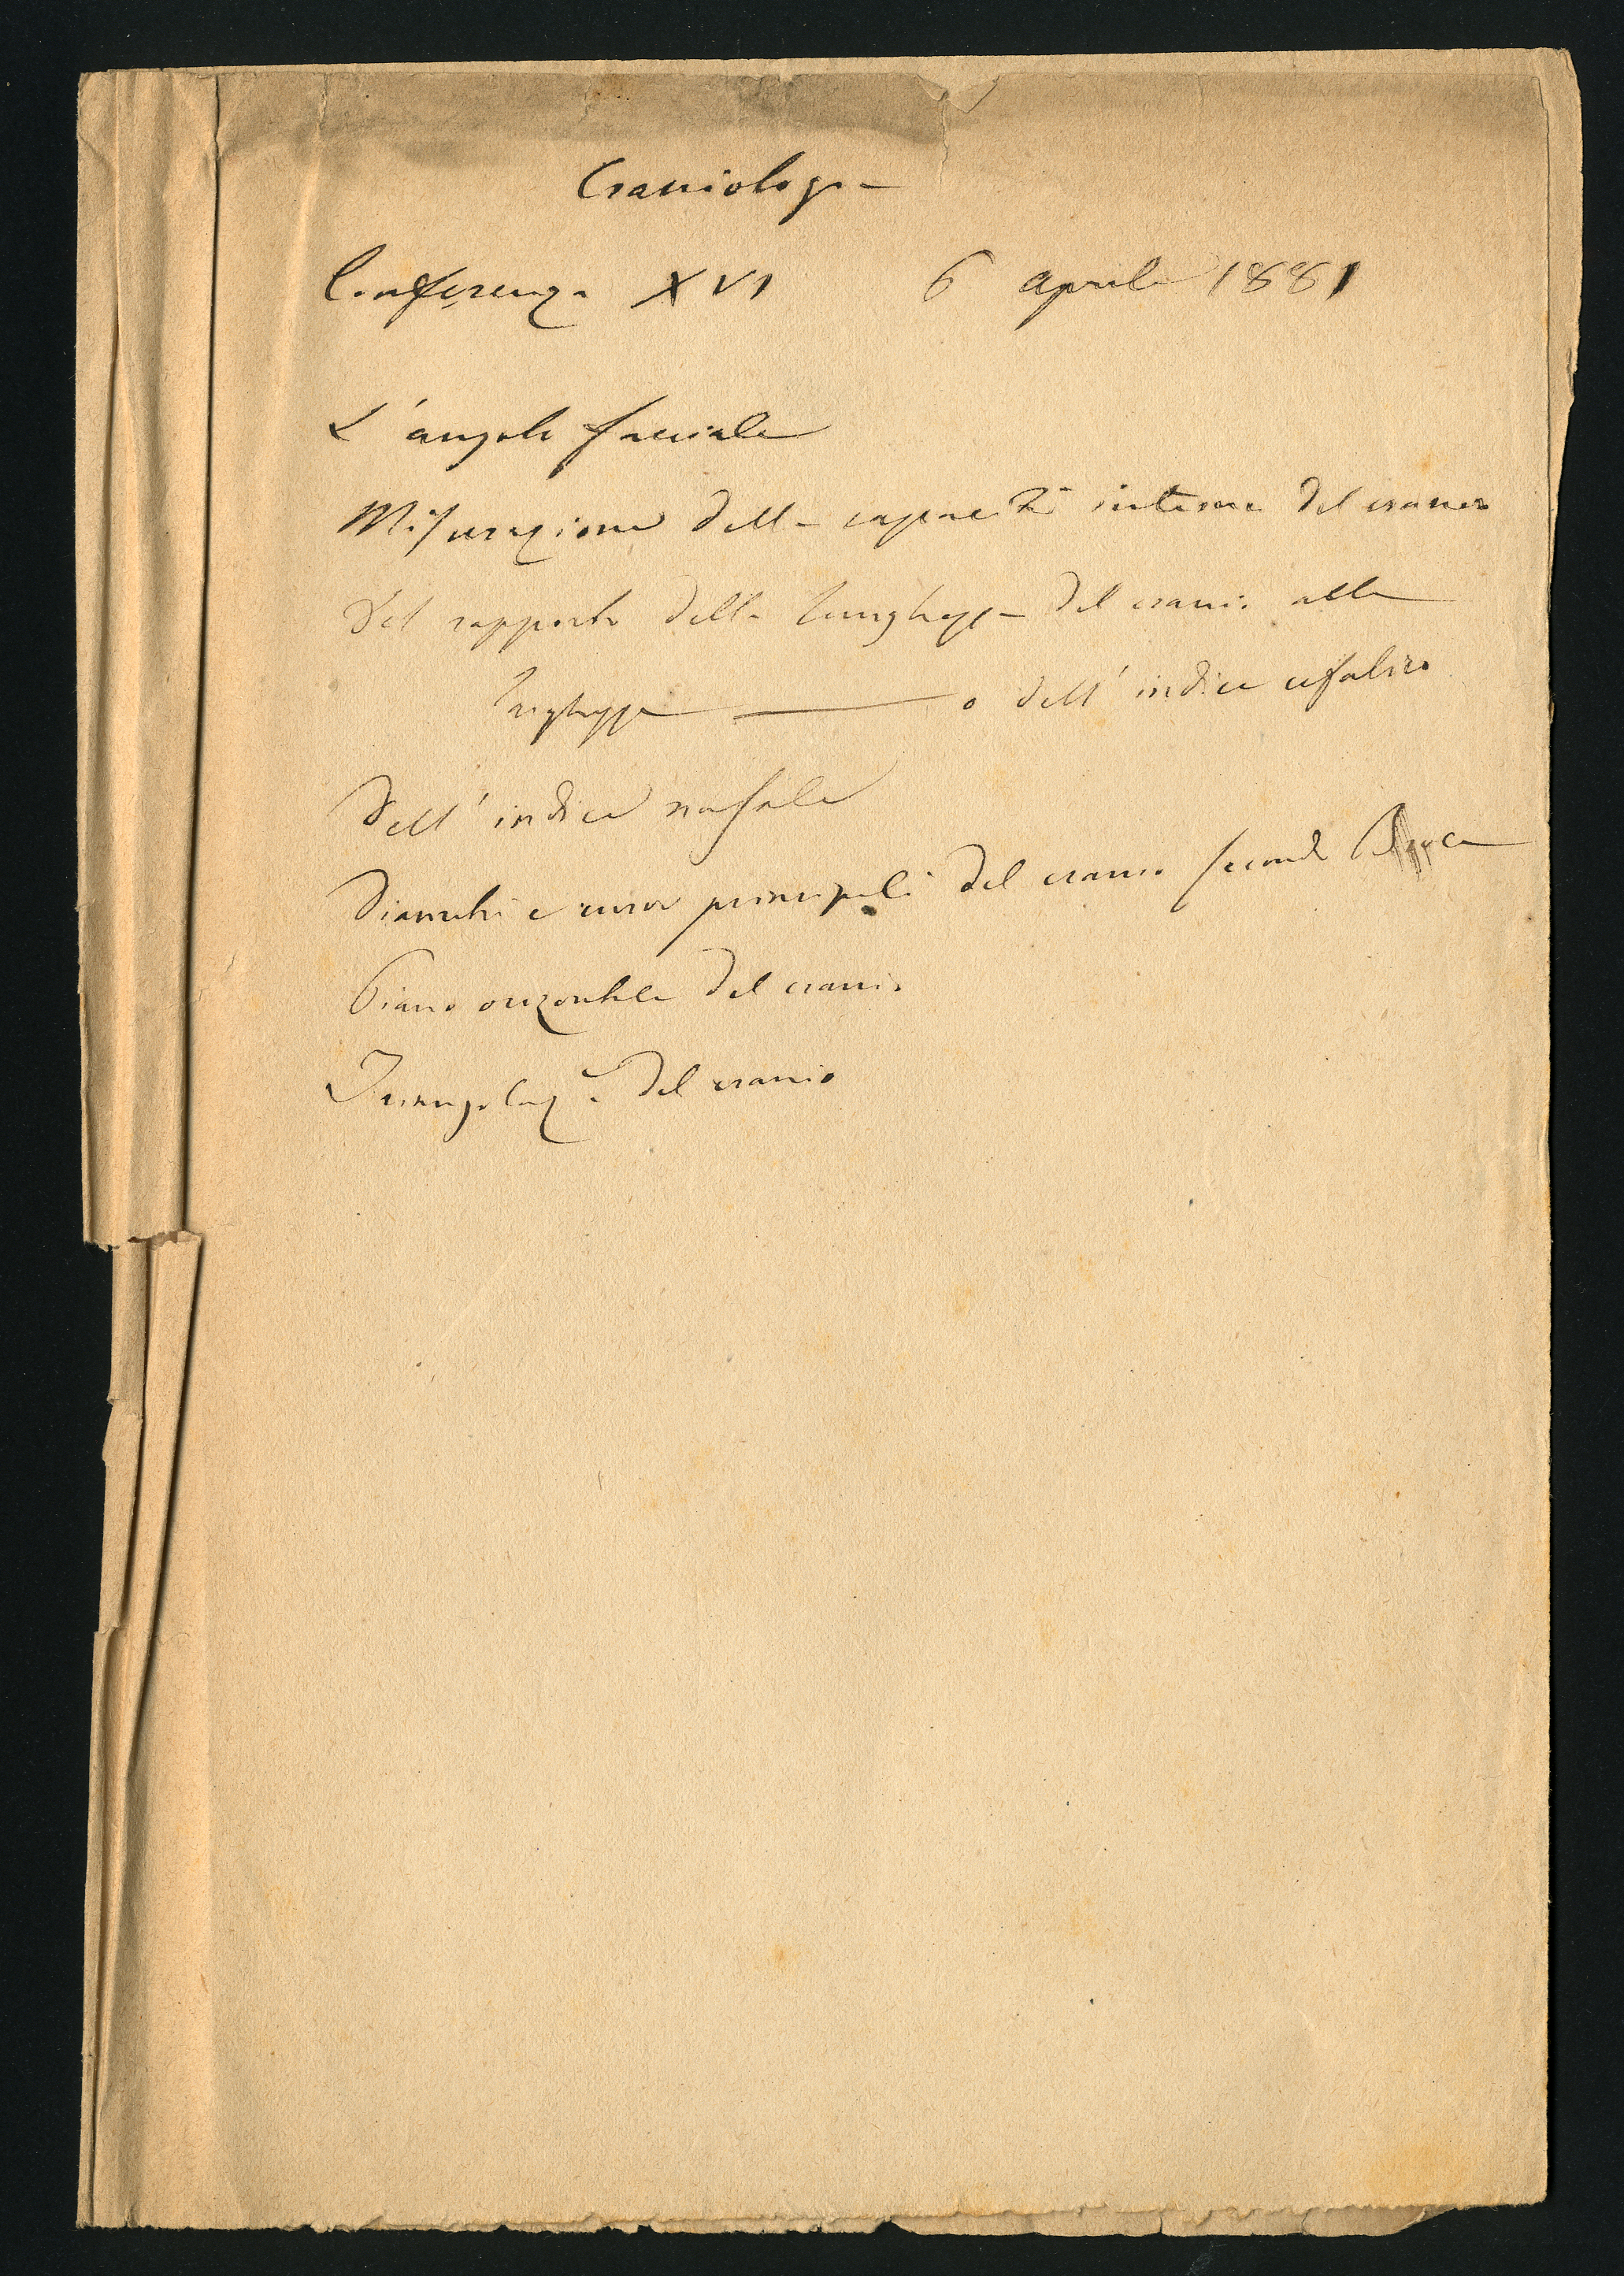 Craniologia
Conferenza XVI 6 aprile 1881
L'angolo facciale
Misurazione della capacità interna del cranio
Del rapporto della lunghezza del cranio alla
larghezza — o dell'indice cefalico
Dell'indice nasale
Diametri e curve principali del cranio secondo Broca
Piano orizontale del cranio
Triangolaz.e del cranio